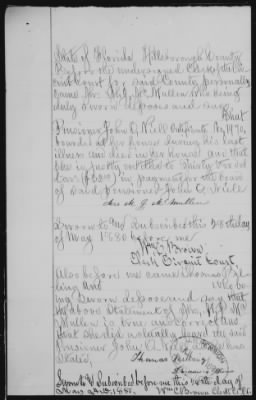 State of Florida Hillsborough County
Before the undersigned Clerk of the Cir
cuit Court for said County personally
came Mrs M. J. McMullen who being
duly sworn deposes and says
that
Pensioner John O. Niell Certificate No
boarded at her house during his last
illness and died in her house and that
she is
Dollars in payment for the board
of said pensioner John O. Niell
Mrs M. J. McMullen
Sworn to and Subscribed this 28th day
of May 1880 before me
Wm C Brown
Clerk Circuit Court
Also before me came Thomas
and who be
ing sworn deposes and say that
the above statement of Mrs M. J. Mc
Mullen is true and correct and
that she did actually board the said
pensioner John O. Niell as above
Stated,
Thomas
Sworn to & Subscribed before me this 28th day of
May 1880. Wm C Brown Clk C. C.